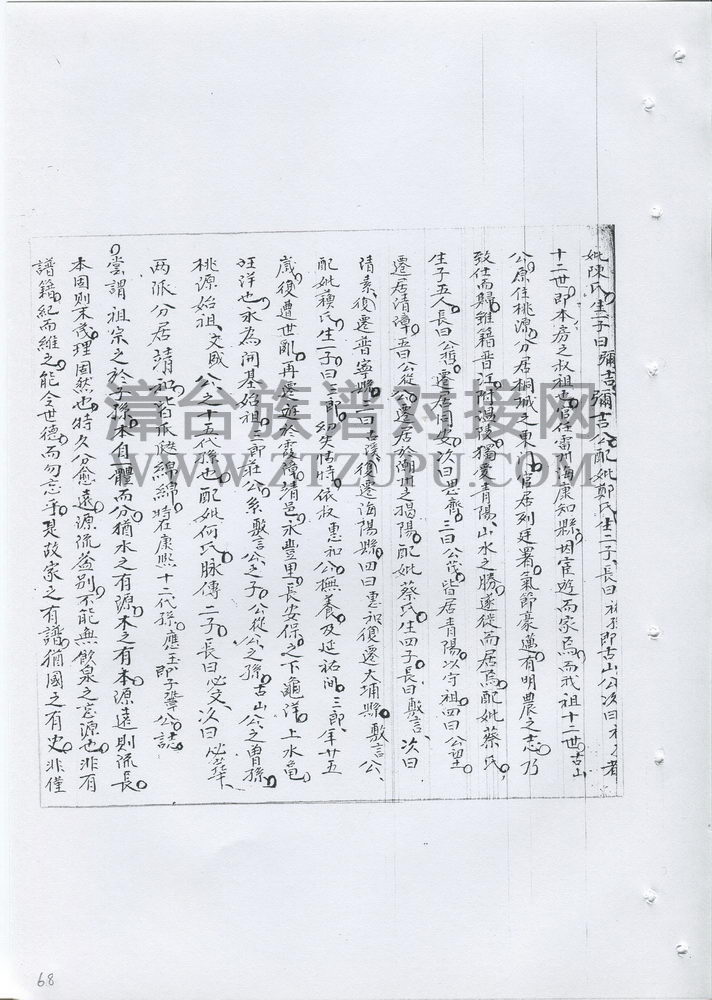 妣陳氏生一子曰彌吉彌吉公配妣鄭氏生二子長曰祐孫即古山公次曰者
十二世即本房之叔祖也官任雷州海康知縣因宦遊而家焉而我祖十二世古山
公原住桃源分居桐城之東山官居列廷署氣節豪邁有明農之志乃
致仕而歸雜籍晋江附温陵獨愛青陽山水之勝遂徙而居焉配妣蔡氏
生子五人長曰公哲遷居同安次曰思齊三曰公茂皆居青陽以守祖四曰公望
遷居清漳五曰公從公遷居於潮州之揭陽配妣蔡氏生四子長曰敷言次曰
清素復遷普寧縣三曰復遷海陽縣四曰惠和復遷大埔縣敷言公
配妣蘇氏生一子曰三郎幼失怙恃依叔惠和公撫養及延祐间三郎年廿五
歲復遭世亂再遷遊於霞漳靖邑永豐里長安保之下龜洋上水龟
旺洋也永為開基始祖三郎莊公系敷言公之子公從公之孫古山公之曾孫
桃源始祖文盛公之十五代孫也配妣何氏脉傳二子長曰必文次曰必華
两派分居靖和皆瓜瓞綿綿時在康熙十二代孫應玉郎子鞏公誌
嘗謂祖宗之於子孫本自一體而分猶水之有源木之有本源遠則流長
本固則末茂理固然也特久分愈遠源流益别不能無飲泉之忘源也非有
譜籍紀而維之能令世德而勿忘乎是故家之有譜猶國之有史非僅
漳台族谱对接网
WWW.ZTZUPU.COM
68